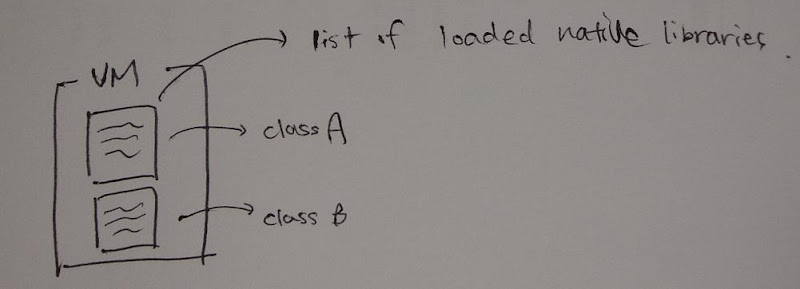 list of loaded native libraries.
VM
class A
class B